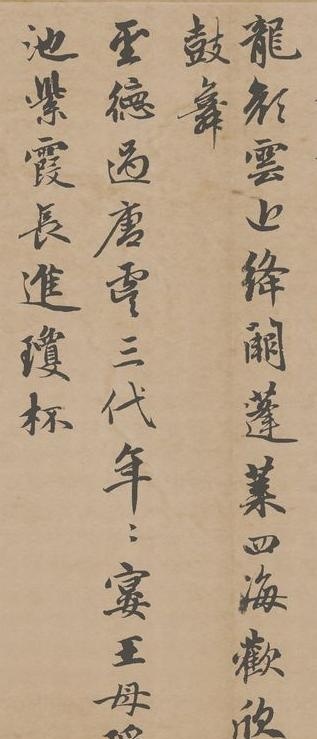 龍顏雲近絳闕蓬萊四海歡欣
鼓舞
聖德過唐虞三代年〻宴王母瑤
池紫霞長進瓊杯